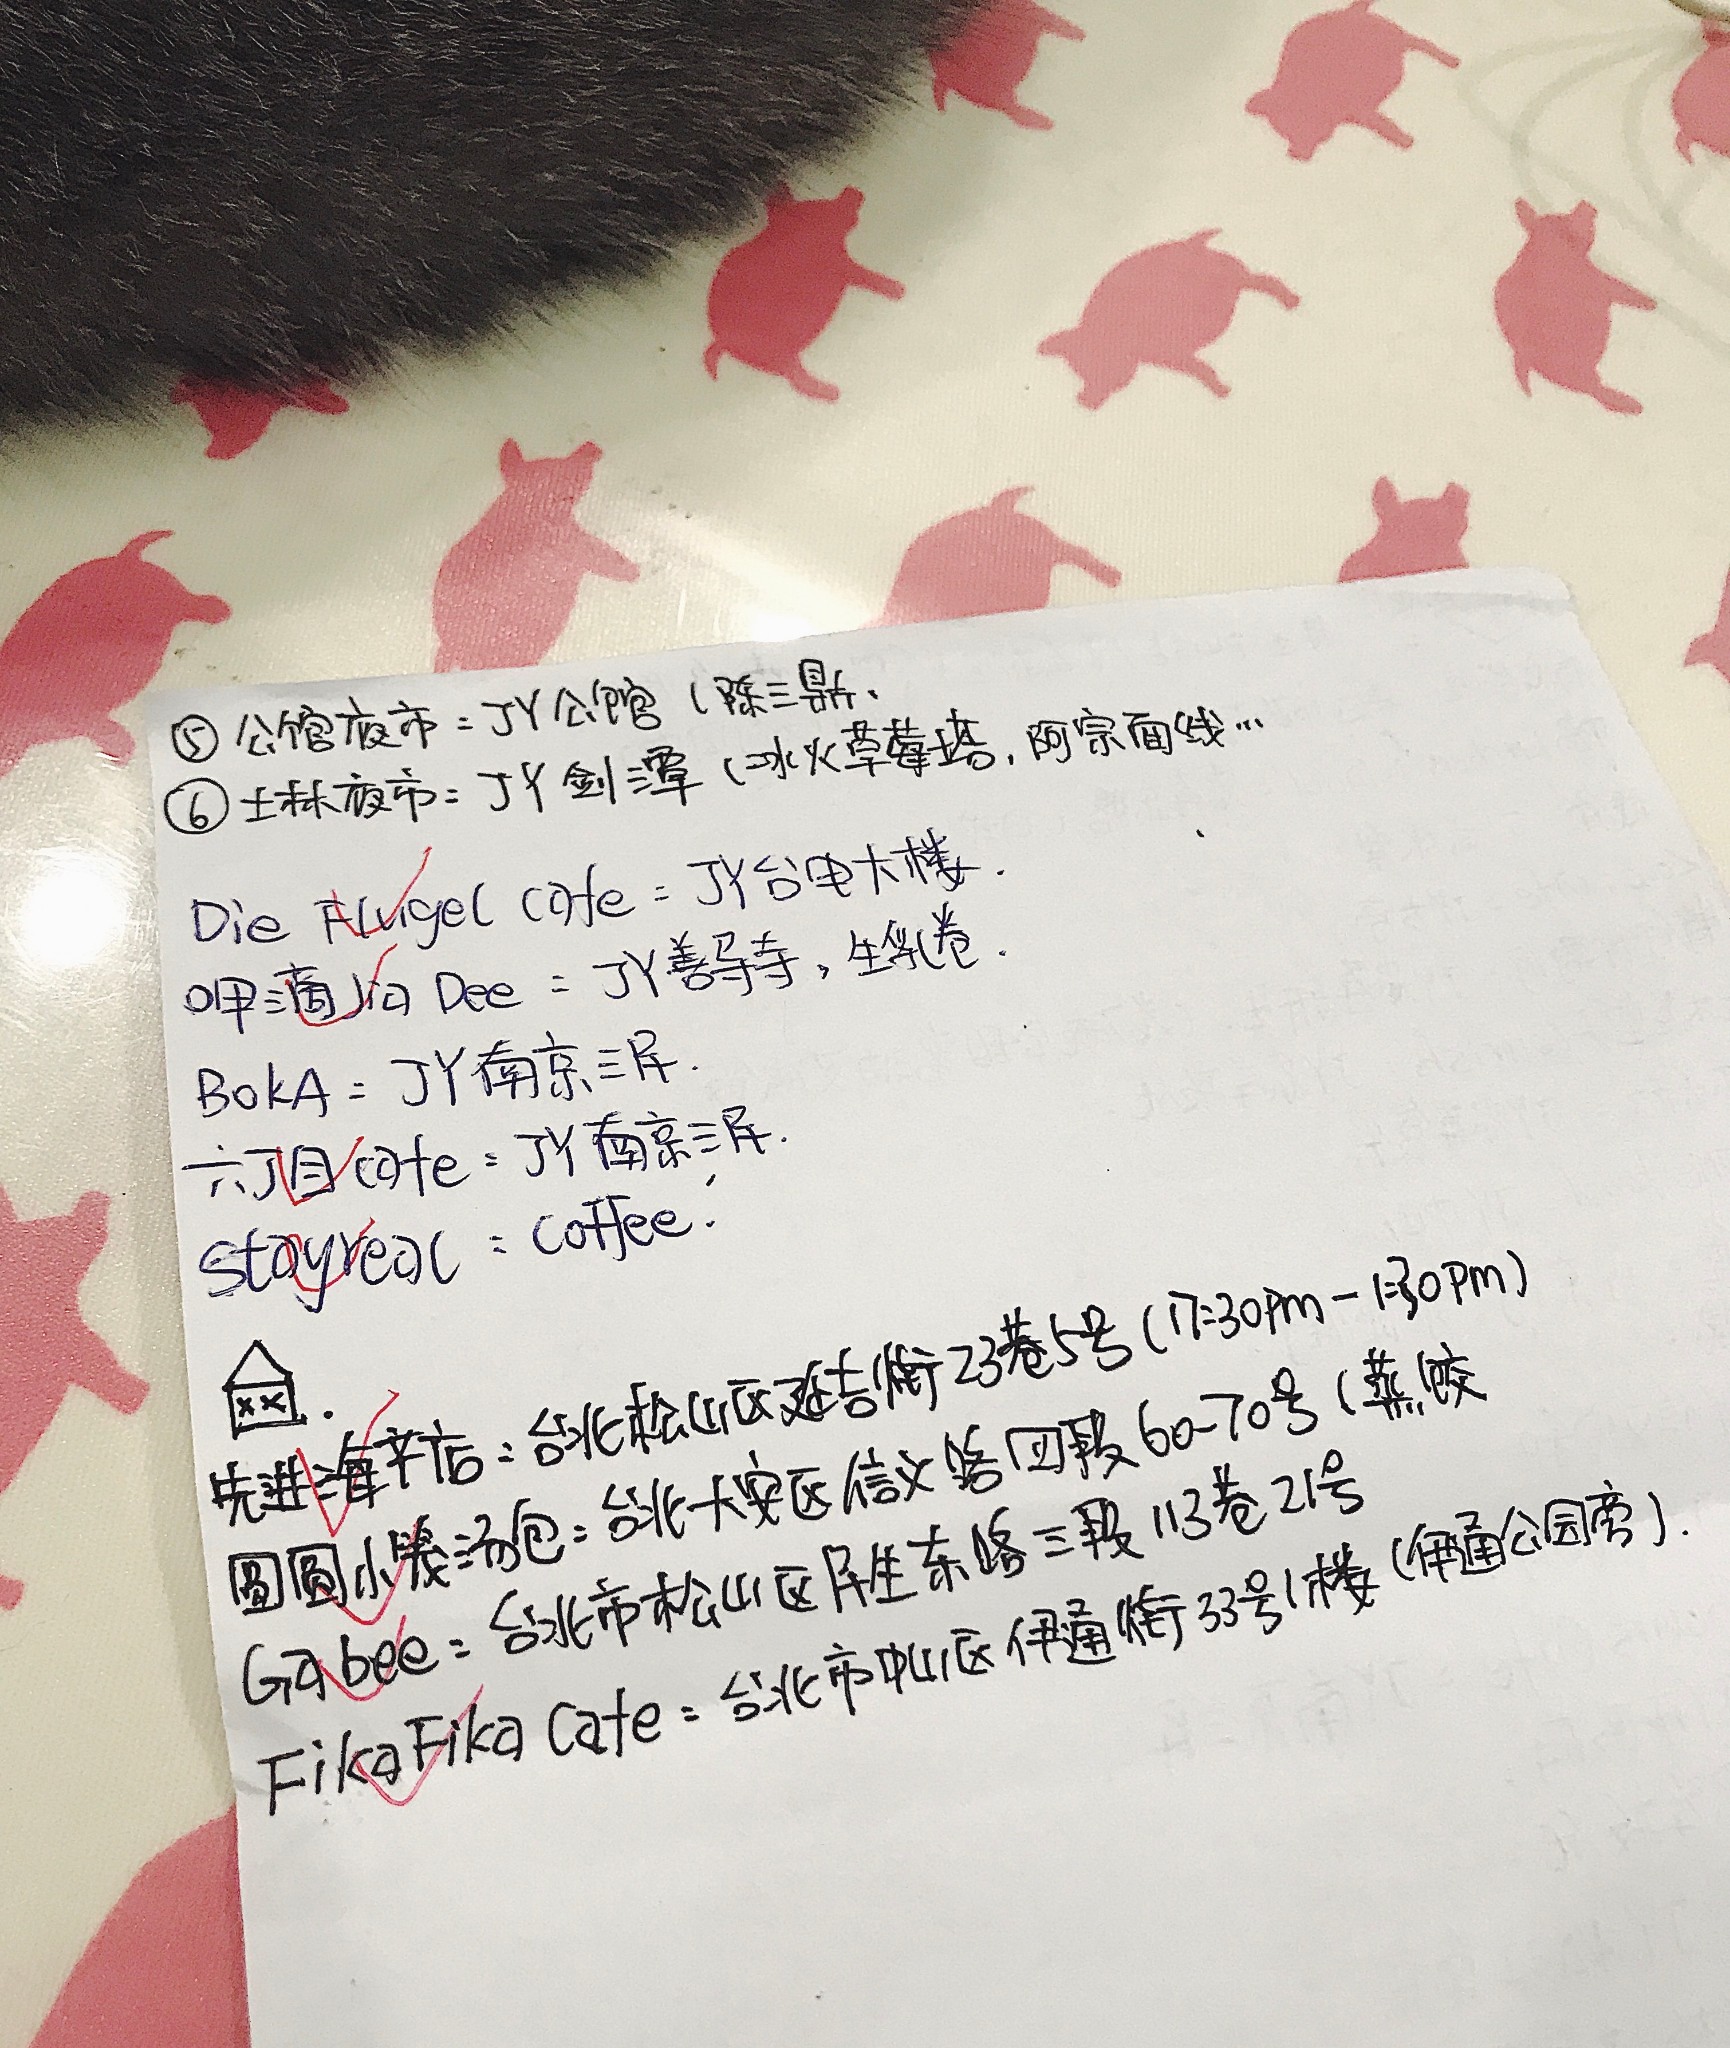 ⑤ 公馆夜市=JY公馆(陈三鼎、
⑥ 士林夜市=JY剑潭(冰火草莓塔,阿宗面线…
Die Flugel Cafe=JY台电大楼.
呷滴Jia Dee=JY善导寺,生乳卷.
BokA=JY南京三民.
六丁目cafe=JY南京三民.
stayreal=coffee.
先进海产店=台北松山区延吉街23巷5号(17:30pm-1:30pm)
圆圆小笼汤包=台北大安区信义路四段60-70号(蒸饺
Gabee=台北市松山区民生东路三段113巷21号
FikaFika Cafe=台北市中山区伊通街33号1楼(伊通公园旁).